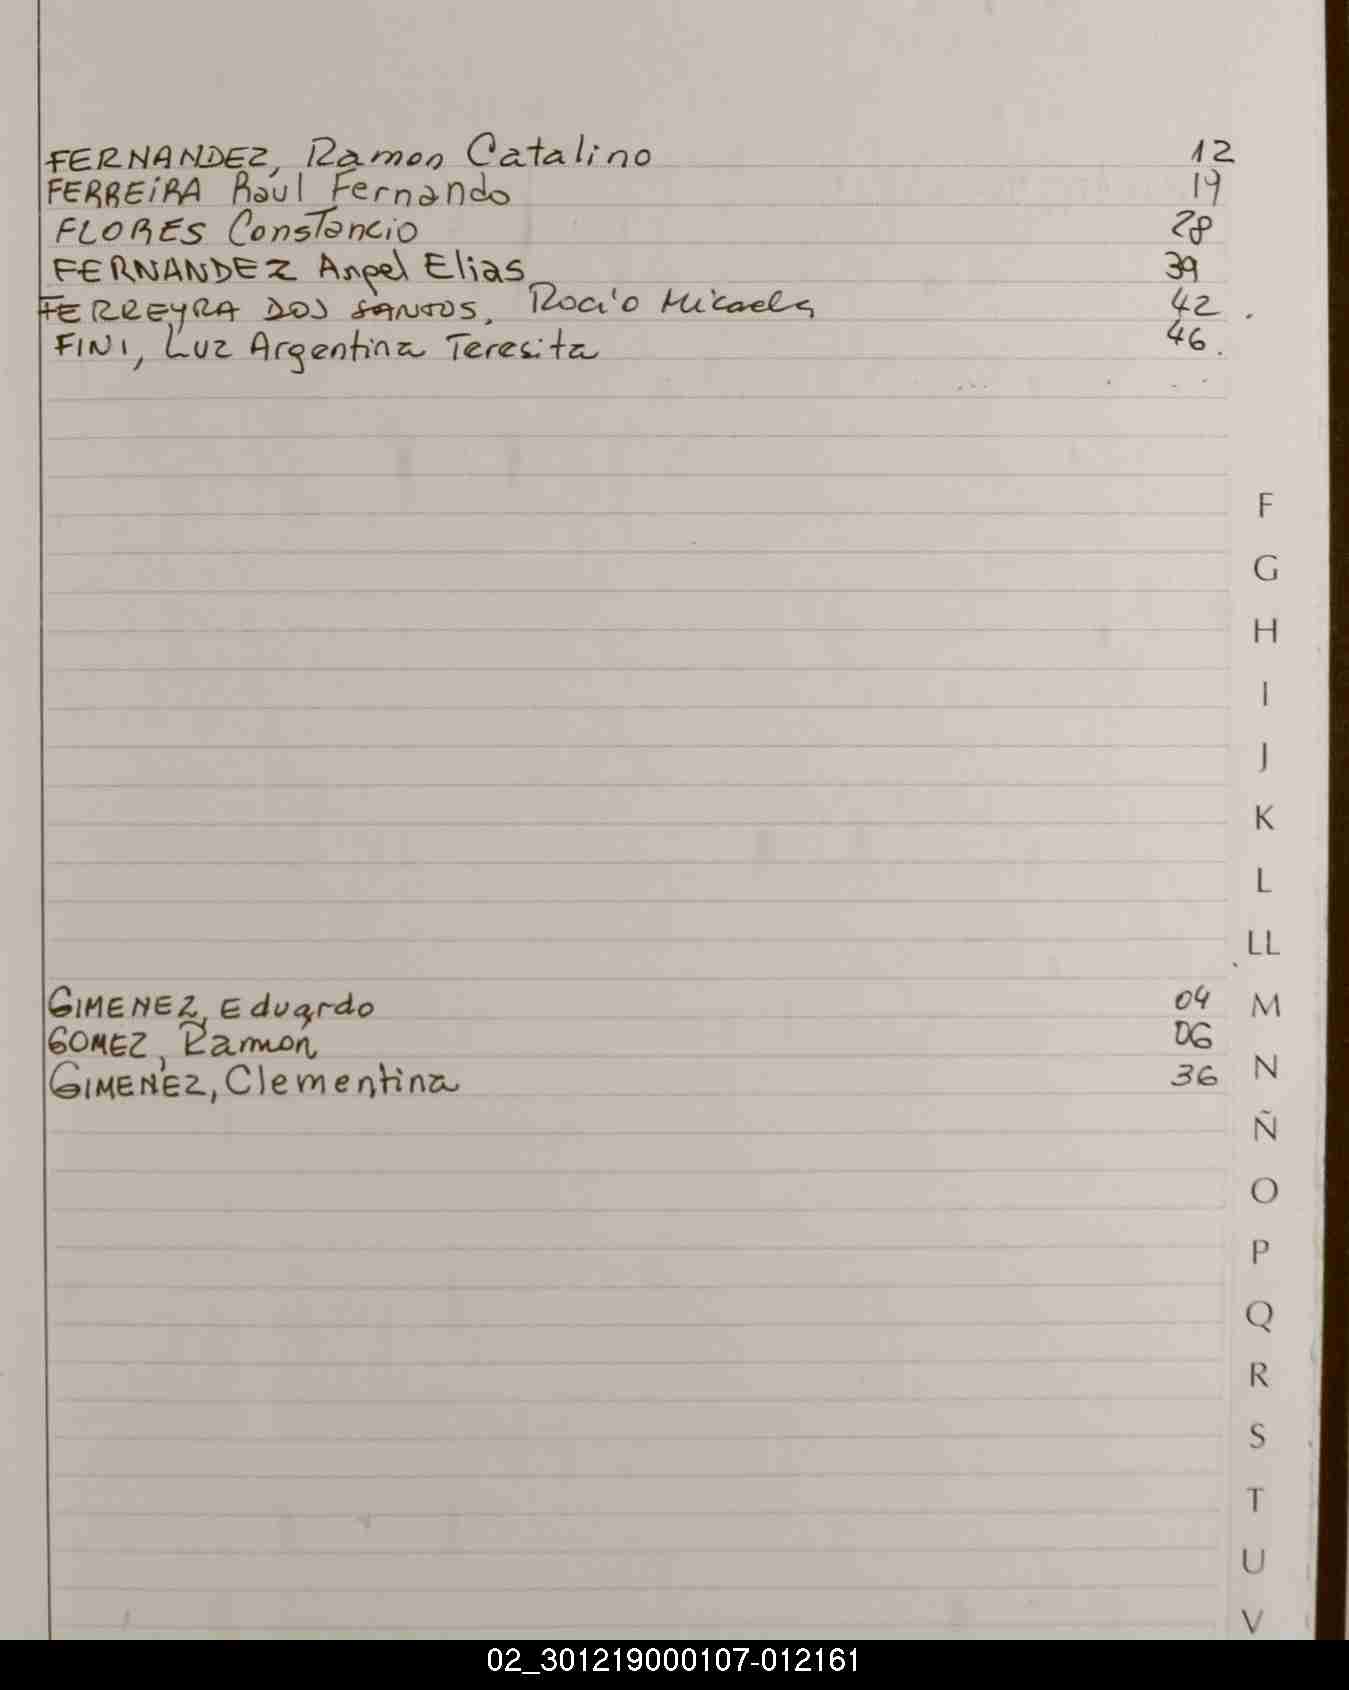 FERNANDEZ, Ramon Catalino 12
FERREIRA Raul Fernando 19
FLORES Constancio 28
FERNANDEZ Angel Elias 39
FERREYRA DOS SANTOS, Rocio Micaela 42
FINI, Luz Argentina Teresita 46
F
G
H
I
J
K
L
LL
GIMENEZ, Eduardo 04
M
GOMEZ, Ramón 06
GIMENEZ, Clementina 36
N
Ñ
O
P
Q
R
S
T
U
V
02_301219000107-012161